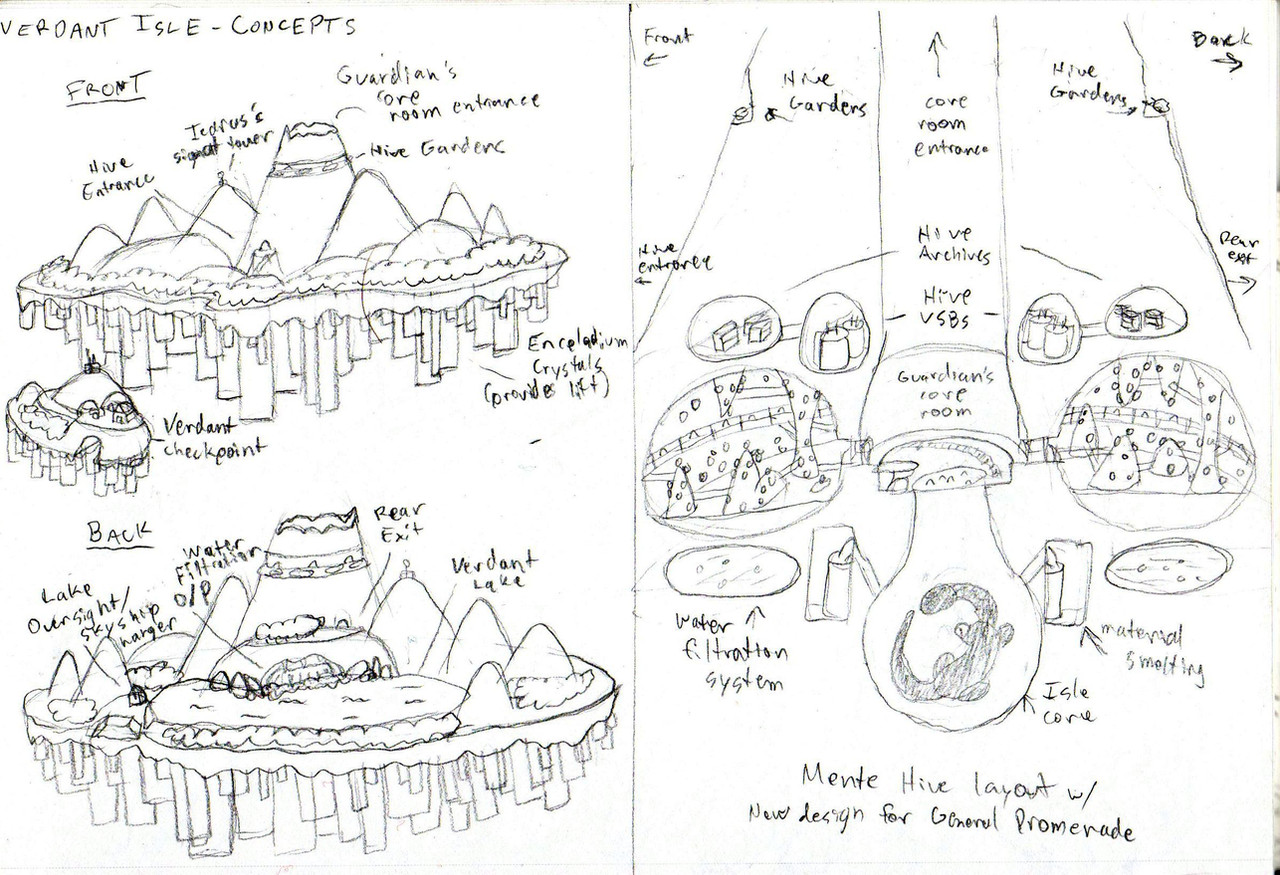 VERDANT ISLE - CONCEPTS
FRONT
Guardian's
core
room entrance
Icarus's
signal tower
Hive Gardens
Hive
Entrance
Enceladium
Crystals
(provides lift)
Verdant
checkpoint
BACK
Rear
Exit
Water
Filtration
O/P
Verdant
Lake
Lake
Oversight/
skyship
hanger
Front
Back
Hive
Gardens
Hive
Gardens
core
room
entrance
Hive
entrance
Hive
Archives
Rear
exit
Hive
VSBs
Guardian's
core
room
Water
filtration
system
material
smelting
Isle
core
Mente Hive layout w/
New design for General Promenade